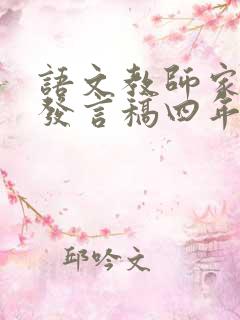 語文教師家
發言稿四年
邱吟文